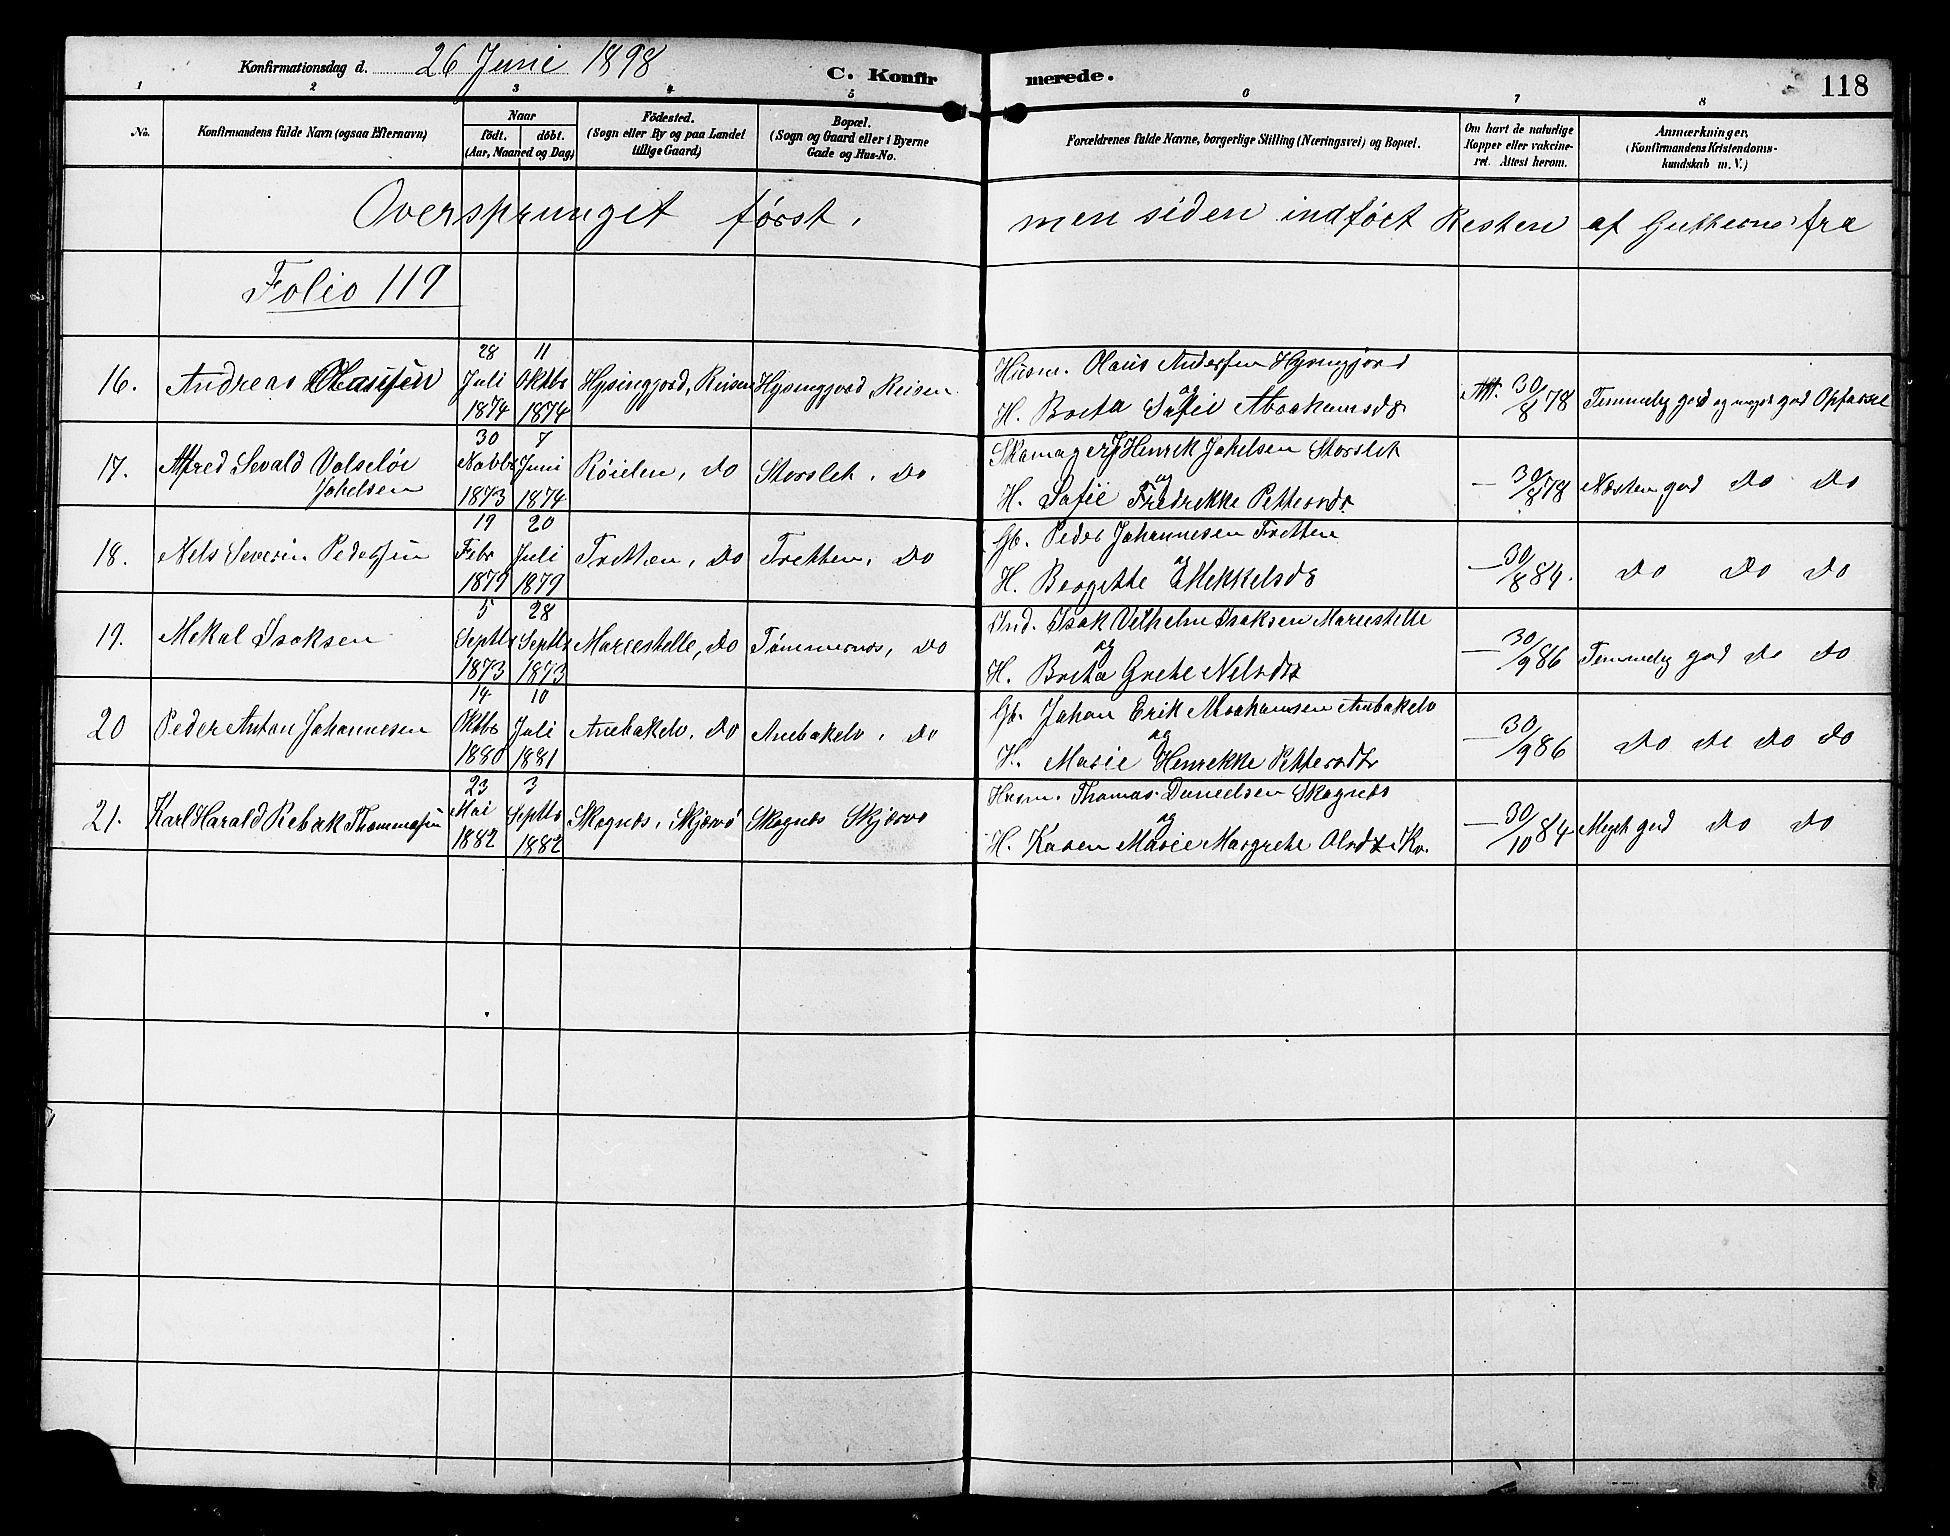 Konfirmationsdag d. 26 Juni 1898
C. Konfirmerede.
118
1 2 3 4 5 6 7 8
No.
Konfirmandens fulde Navn (ogsaa Efternavn)
Naar
födt. döbt.
(Aar, Maaned og Dag)
Födested.
(Sogn eller By og paa Landet
tillige Gaard)
Bopæl.
(Sogn og Gaard eller i Byerne
Gade og Hus-No.
Forældrenes fulde Navne, borgerlige Stilling (Næringsvei) og Bopæl.
Om havt de naturlige
Kopper eller vakcine-
ret. Attest herom.
Anmærkninger,
(Konfirmandens Kristendoms-
kundskab m. V.)
Oversprunget først, men siden indført Resten af Gutterne fra
Folio 119
16. Andreas Olaussen
28 Juli 1874
11 Oktbr 1874
Hysingjord, Reisen
Hysingjord, Reisen
Husm. Olaus Anderssen Hysingjord
og
H. Brita Sofie Abrahamsdr
Att. 30/8 78
Temmelig god og meget god Opførsel
17. Alfred Sevald Valseløe
Jakelsen
30 Novbr 1873
7 Juni 1874
Røielen, do
Storslet, do
Skomager J Henrik Jakelsen Storslet
og
H. Sofie Fredrekke Pettersdr
— 30/8 78
Næsten god do do
18. Nels Severin Pederssen
19 Febr 1879
20 Juli 1879
Tretten, do
Tretten, do
Gb. Peder Johannesen Tretten
og
H. Bergette E Mekkelsdr
— 30/8 84.
do do do
19. Mekal Isaksen
5 Septbr 1873
28 Septbr 1873
Marieshelle, do
Tømmernes, do
Ind. Isak Vilhelm Isaksen Marieshelle
og
H. Brita Grete Nilsdtr
— 30/9 86
Temmelig god do do
20 Peder Anton Johannesen
14 Oktbr 1880
10 Juli 1881
Anebakelv, do
Anebakelv, do
Gb. Johan Erik Abrahamsen Anbakelv
og
H. Marie Henrekke Pettersdtr
— 30/9 86
do do do do
21. Karl Harald Rebæk Thommassen
23 Mai 1882
3 Septbr 1882
Skognes, Skjærvø
Skognes Skjærvø
Husm. Thomas Danielsen Skognes
og
H. Karen Marie Margrethe Olsdtr i Kv.
— 30/10 84
Meget god do do